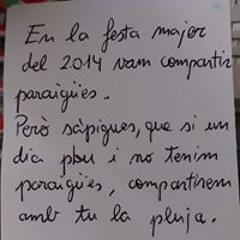 En la festa major
del 2014 vam compartir
paraigües.
Però sàpigues, que si un
dia plou i no tenim
paraigües, compartirem
amb tu la pluja.